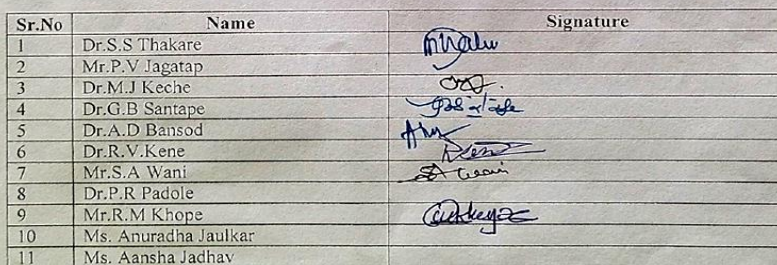 Sr.No Name Signature
1 Dr.S.S Thakare
2 Mr.P.V Jagatap
3 Dr.M.J Keche
4 Dr.G.B Santape
5 Dr.A.D Bansod
6 Dr.R.V.Kene
7 Mr.S.A Wani
8 Dr.P.R Padole
9 Mr.R.M Khope
10 Ms. Anuradha Jaulkar
11 Ms. Aansha Jadhav